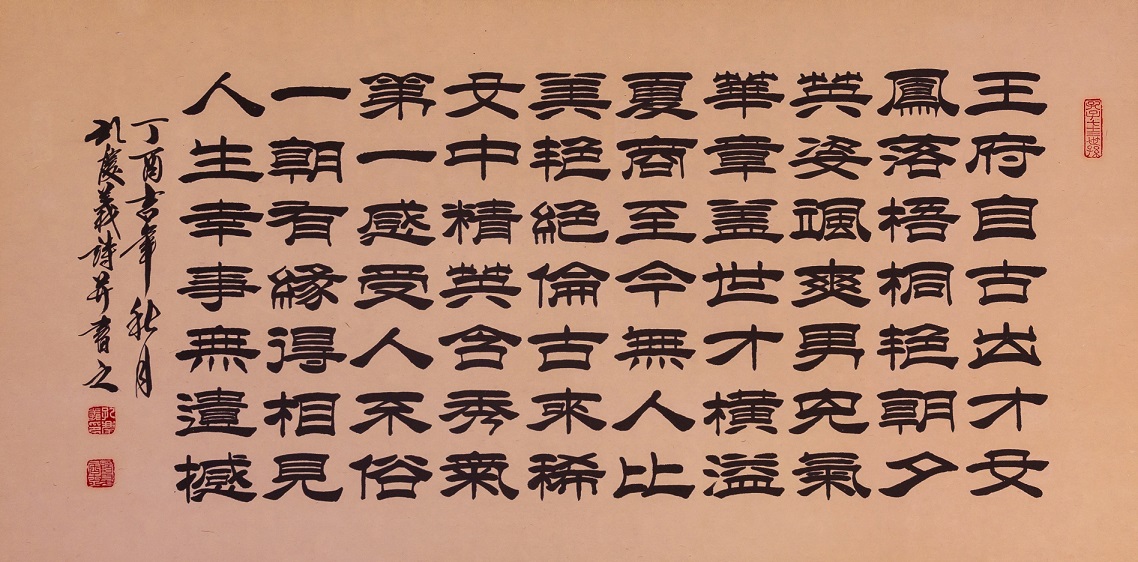 王府自古出才女
鳳落梧桐艳朝夕
英姿颯爽男兒氣
華章盖世才橫溢
夏商至今無人比
美艳絕倫古來稀
女中精英含秀氣
第一感受人不俗
一朝有緣得相見
人生幸事無遺憾
丁酉吉年秋月
孔慶義詩并書之